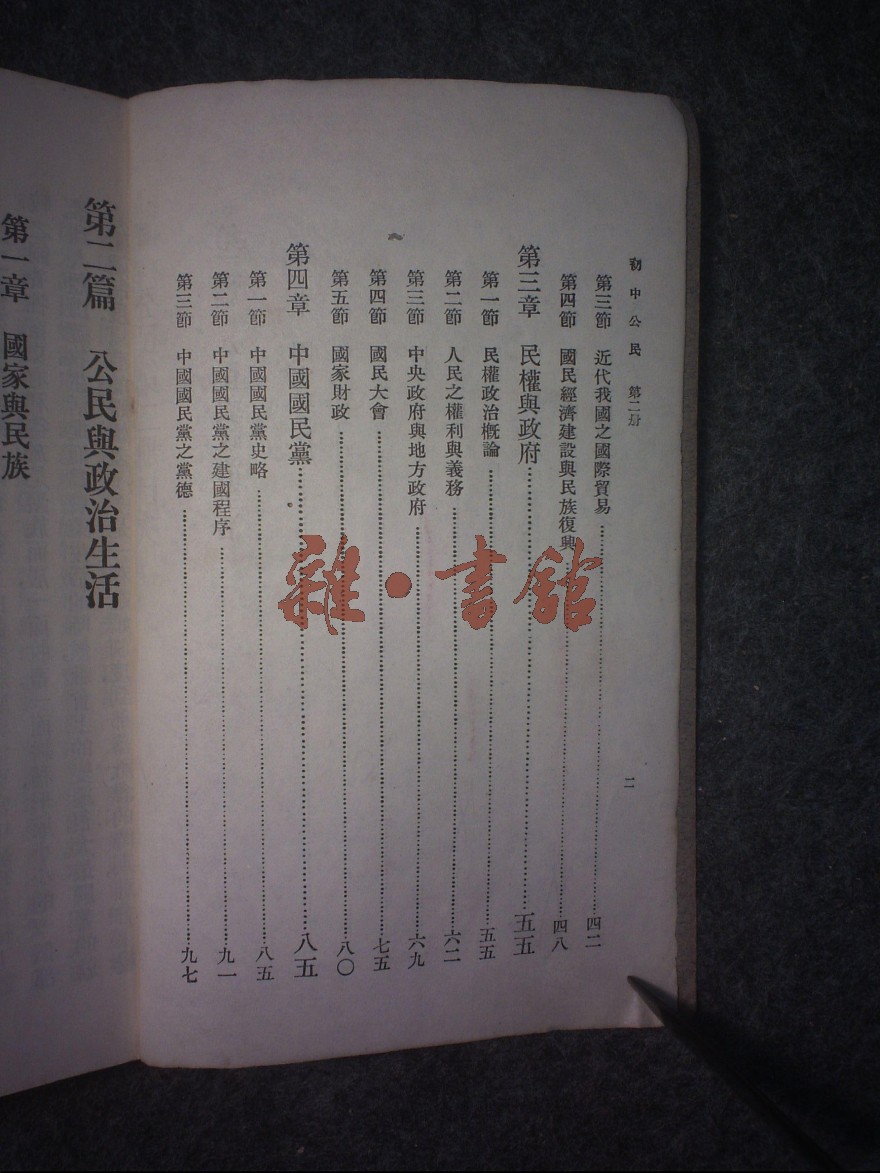 初中公民 第二册
二
第三節 近代我國之國際貿易……四二
第四節 國民經濟建設與民族復興……四八
第三章 民權與政府……五五
第一節 民權政治概論……五五
第二節 人民之權利與義務……六二
第三節 中央政府與地方政府……六九
第四節 國民大會……七五
第五節 國家財政……八〇
第四章 中國國民黨……八五
第一節 中國國民黨史略……八五
第二節 中國國民黨之建國程序……九一
第三節 中國國民黨之黨德……九七
第二篇 公民與政治生活
第一章 國家與民族
雜·書館